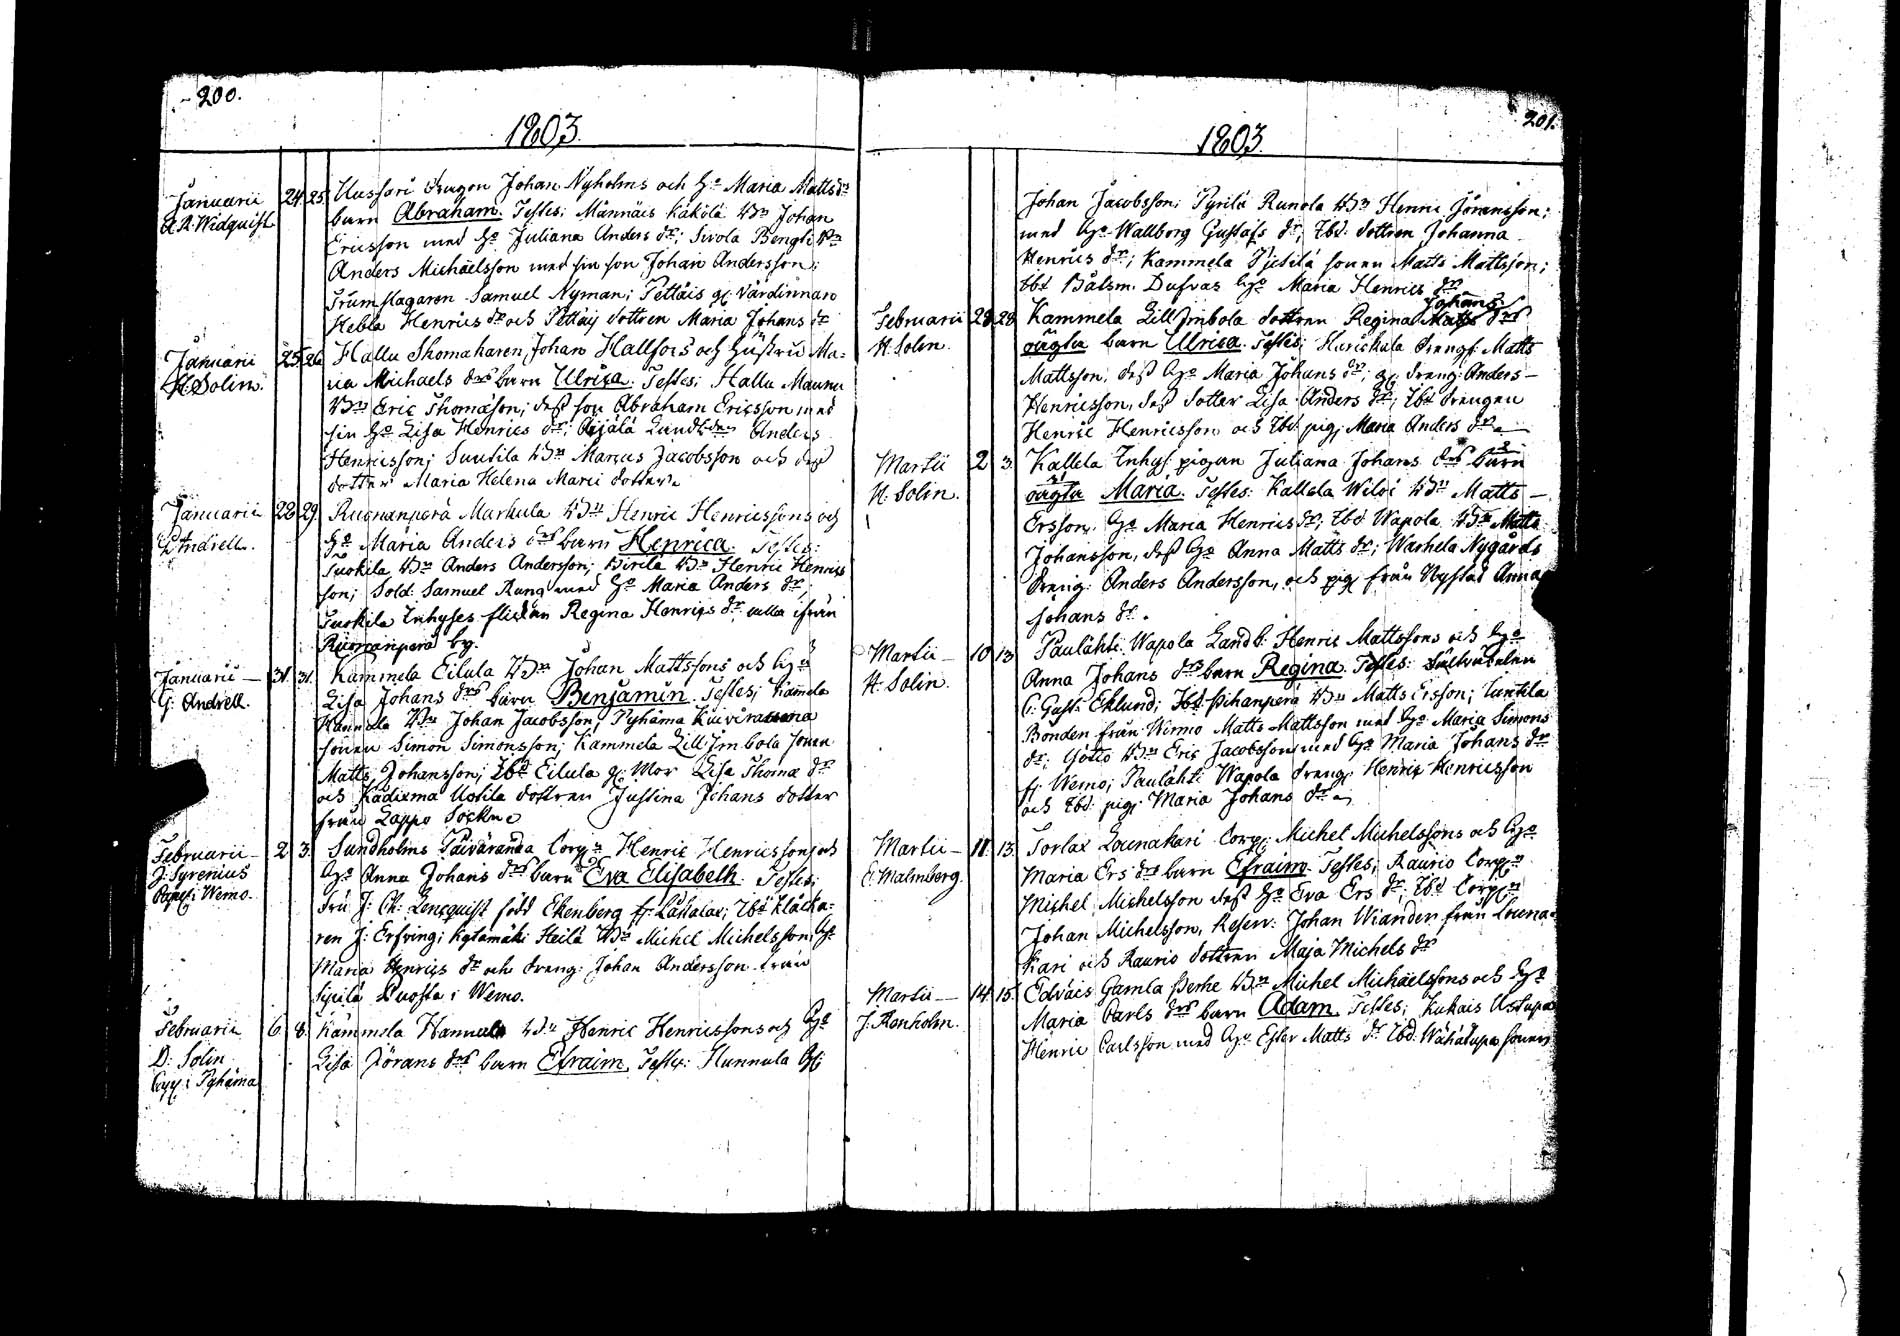 200.
1803.
Januarii 24. 25. Hussari dragon Johan Nyholms och H:o Maria Matts d:r
A. R. Widquist barn Abraham. Testes: Männäis Käkölä B:n Johan
Ericsson med H:o Juliana Anders d:r; Sivola Bengti B:n
Anders Michaëlsson med sin son Johan Andersson;
Trumslagaren Samuel Nyman; Pettäis g: Värdinnan
Hebla Henrics d:r och Pettäis dottren Maria Johans d:r
Januarii 25. 26. Hallu Skomakaren Johan Hallfors och Hustru Ma=
H. Solin. ria Michaels d:rs barn Ulrica. Testes: Hallu Maunu
B:n Eric Thomæson; dess son Abraham Ericsson med
sin H:o Lisa Henrics d:r; Äijälä Landb:n Anders
Henricsson; Suutila B:n Marcus Jacobsson och dess
dotter Maria Helena Marci dotter.
Januarii 28. 29. Ruonanperä Markula B:n Henric Henricssons och
G. Andrell. H:o Maria Anders d:rs barn Henrica. Testes:
Tuokila B:n Anders Andersson; Birilä B:n Henric Henrics
son; Sold. Samuel Rang med H:o Maria Anders d:r;
Tuokila Inhyses flickan Regina Henrics d:r, alla ifrån
Ruonanperä by.
Januarii 31. 31. Kammela Eilula B:n Johan Mattssons och H:o
G. Andrell. Lisa Johans d:rs barn Benjamin. Testes; Kamela
Hannula B:n Johan Jacobsson, Pyhäma
sonen Simon Simonsson; Kammela Lill Jmbola sonen
Matts Johansson; Ibd Eilula g: Mor Lisa Thomæ d:r
och Kadixma Uotila dottren Justina Johans dotter
från Lappo Sockne
Februarii 2. 3. Sundholms Päiväranda Corp:n Henric Henricssons och
J. Syrenius H:o Anna Johans d:rs barn Eva Elisabeth. Testes;
Capell: i Wemo. Fru J: Ch: Lencquist född Ekenberg fr. ; Ibd Kläcka=
ren J: Erfving; Kytämäki Heilä B:n Michel Michelsson H:o
Maria Henrics d:r och dreng: Johan Andersson från
Sipilä Puosta i Wemo.
Februarii 6. 8. Kammela Hannula B:n Henric Henricssons och H:o
D: Solin Lisa Jörans d:rs barn Efraim. Testes: Hunnula
Capp: i Pyhäma
201.
1803.
Johan Jacobsson; Pyrilä Runola B:n Henric Jöransson;
med H:o Wallborg Gustafs d:r; Ibd. dottren Johanna
Henrics d:r; Kammela Pietilä sonen Matts Mattsson;
Ibd Båtsm. Dufvas H:o Maria Henrics d:r
Johans
Februarii 28. 28. Kammela Lill Jmbola dottren Regina Matts d:rs
H. Solin. oägta barn Ulrica. Testes; Haukkala drengs. Matts
Mattsson, dess H:o Maria Johans d:r; g: dreng: Anders
Henricsson, dess dotter Lisa Anders d:r; Ibd drengen
Henric Henricsson och Ibd pig: Maria Anders d:r
Martii 2. 3. Kallela Inhys pigan Juliana Johans d:rs barn
H. Solin. oägta Maria. Testes: Kallela Wilöi B:n Matts
Ersson, H:o Maria Henrics d:r; Ibd Wapola B:n Matts
Johansson, dess H:o Anna Matts d:r; Warhela Nygårds
dräng: Anders Andersson, och pig: från Nystad Anna
Johans d:r.
Martii 10. 13. Paulahti Wapola Landb. Henric Mattssons och H:o
H. Solin. Anna Johans d:rs barn Regina. Testes:
C: Gust: Eklund; Ibd Pihanperä B:n Matts Ersson; Tuntila
Bonden från Wirmo Matts Mattsson med H:o Maria Simons
d:r; Götto B:n Eric Jacobsson med H:o Maria Johans d:r
fr. Wemo; Paulahti Wapola dreng: Henric Henricsson
och Ibd: pig: Maria Johans d:r
Martii 11. 13. Torlax Lounakari Corp: Michel Michelssons och H:o
E. Malmberg. Maria Ers d:rs barn Efraim. Testes; Raurio Corp:n
Michel Michelsson dess H:o Eva Ers d:r; Ibd Corp:n
Johan Michelsson, Reserv: Johan Wiander från Louna=
kari och Raurio dottren Maja Michels d:r
Martii 14. 15. Edväis Gamla Perhe B:n Michel Michaëlssons och H:o
J. Ranholm. Maria Carls d:rs barn Adam. Testes; Kukais Ustupa
Henric Carlsson med H:o Ester Matts d:r Ibd: Wähätupa sonen